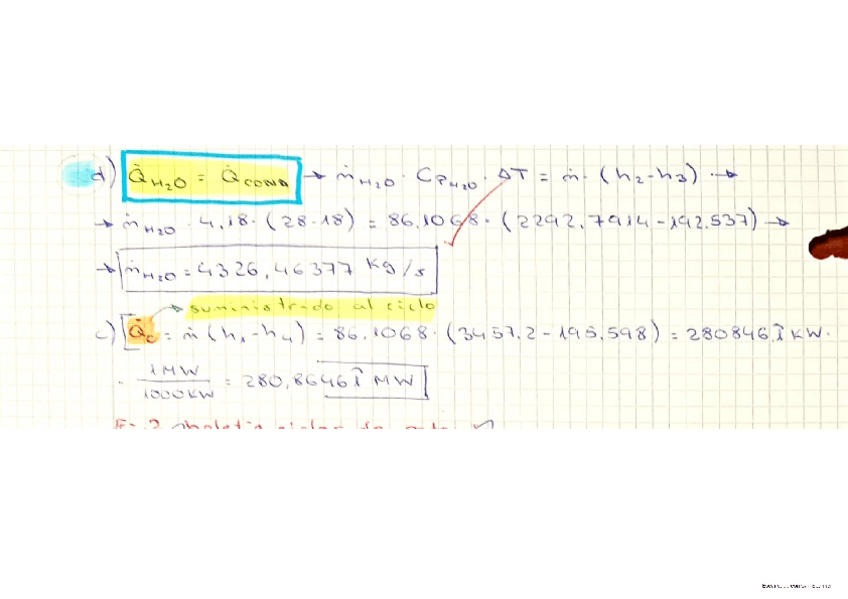 d) Q̇H₂O = Q̇COND → ṁH₂O · CpH₂O · ΔT = ṁ · (h₂-h₃) →
→ ṁH₂O · 4,18 · (28-18) = 86,1068 · (2292,7914-192,537) →
→ ṁH₂O = 4326,46377 kg/s
→ suministrado al ciclo
c) Q̇c = ṁ (h₁-h₄) = 86,1068 · (3457,2-195,598) = 280846,1̂ KW ·
· 1MW/1000KW = 280,86461̂ MW